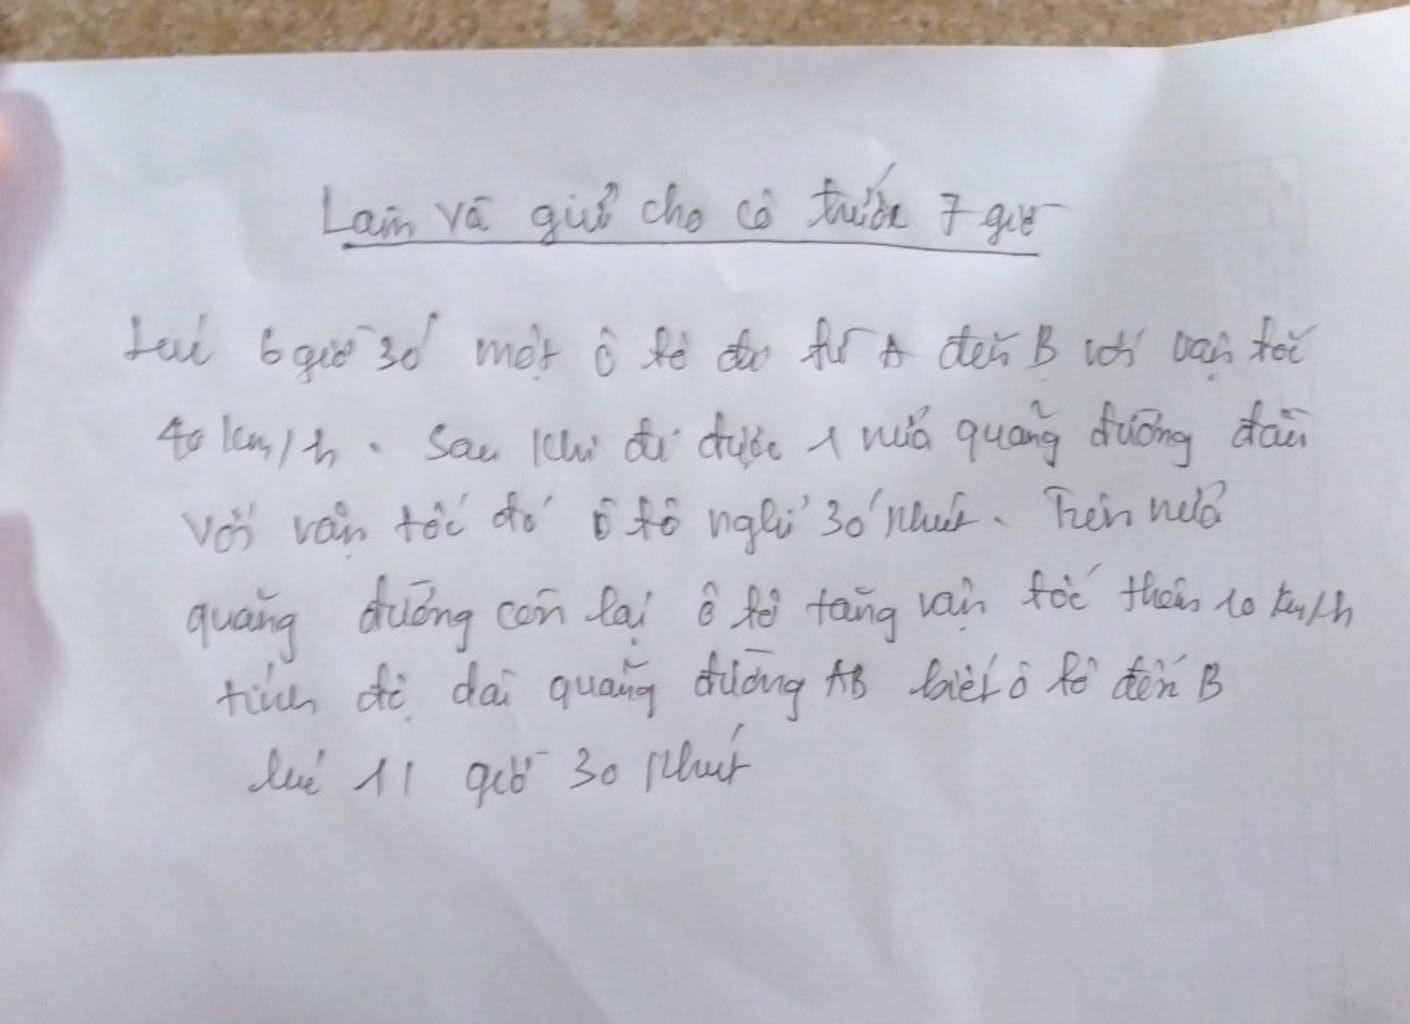 Làm và gửi cho cô trước 7 giờ
Lúc 6 giờ 30' một ô tô đi từ A đến B với vận tốc
40 km/h. Sau khi đi được 1 nửa quãng đường đầu
với vận tốc đó ô tô nghỉ 30' phút. Trên nửa
quãng đường còn lại ô tô tăng vận tốc thêm 10 km/h
tính độ dài quãng đường AB biết ô tô đến B
lúc 11 giờ 30 phút